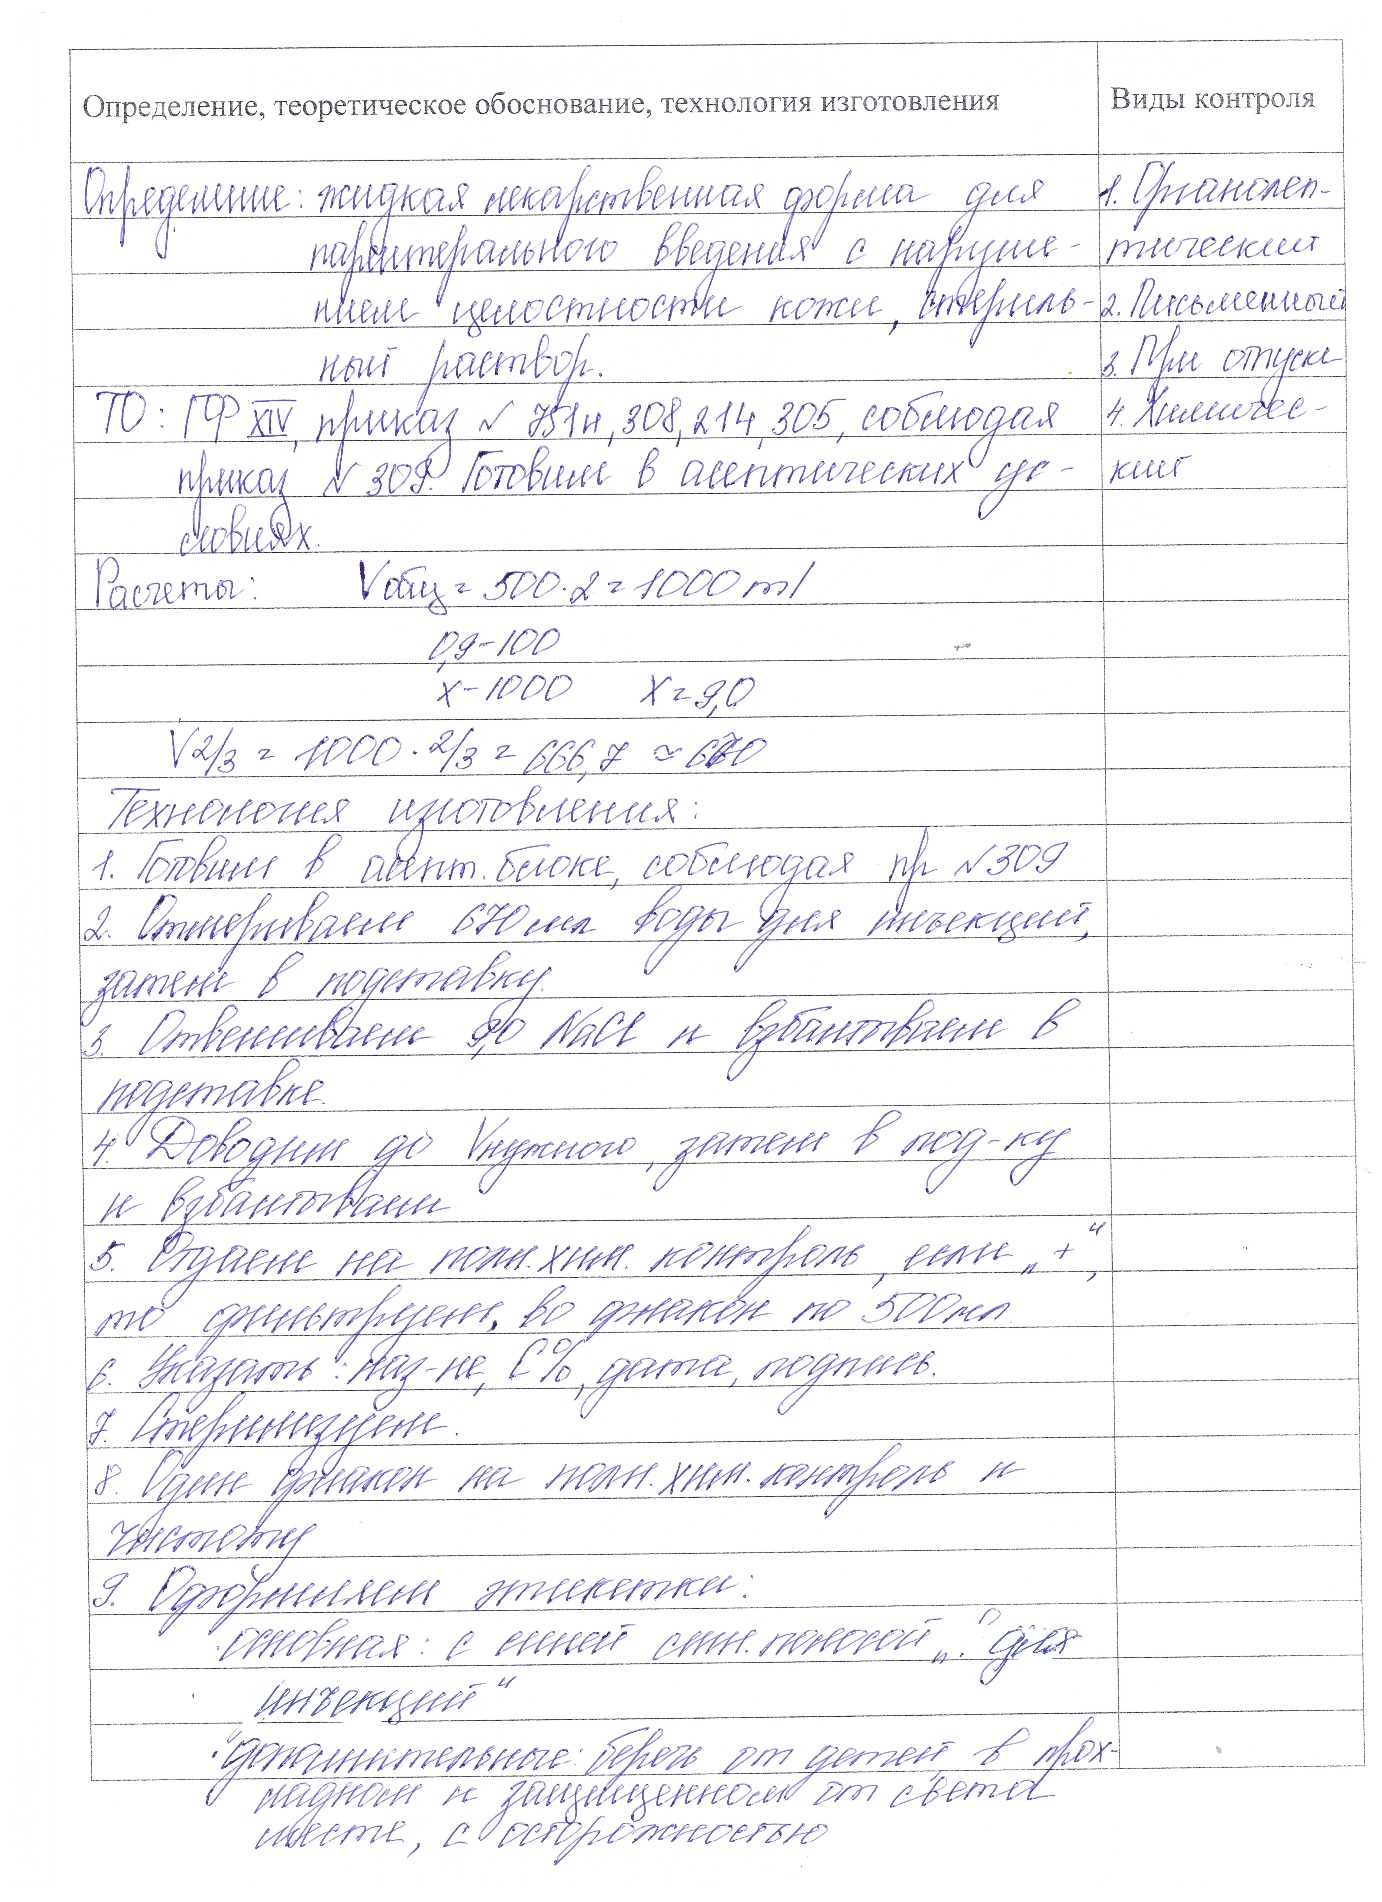 Определение, теоретическое обоснование, технология изготовления
Виды контроля
Определение: жидкая лекарственная форма для
парентерального введения с наруше-
нием целостности кожи, стериль-
ный раствор.
1. Органолеп-
тический
2. Письменный
3. При отпуске
4. Химичес-
кий
ТО: ГФ XIV, приказ № 751н, 308, 214, 305, соблюдая
приказ № 309. Готовим в асептических ус-
ловиях.
Расчеты: Vобщ = 500·2 = 1000 ml
0,9-100
x-1000 X = 9,0
V2/3 = 1000 · 2/3 = 666,7 ≈ 670
Технология изготовления:
1. Готовим в асепт. блоке, соблюдая пр №309
2. Отмериваем 670 мл воды для инъекций,
затем в подставку.
3. Отвешиваем 9,0 NaCl и взбалтываем в
подставке.
4. Доводим до Vнужного, затем в под-ку
и взбалтываем
5. Отдаем на полн. хим. контроль, если „+“,
то фильтруем, во флакон по 500 мл
6. Указать: наз-не, C%, дата, подпись.
7. Стерилизуем.
8. Один флакон на полн. хим. контроль и
чистоту
9. Оформляем этикетки:
основная: с синей полосой „Для
инъекций“
дополнительные: беречь от детей, в прох-
ладном и защищенном от света
месте, с осторожностью